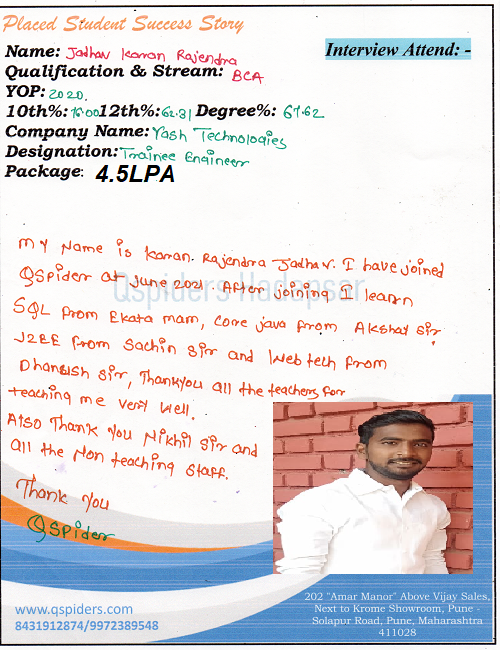 Placed Student Success Story
Name: Jadhav Karan Rajendra
Interview Attend: -
Qualification & Stream: BCA
YOP: 2020.
10th%: 76.00 12th%: 62.31 Degree%: 67.62
Company Name: Yash Technologies
Designation: Trainee Engineer
Package: 4.5LPA
My Name is Karan. Rajendra Jadhav. I have joined
QSpider at June 2021. After joining I learn
Qspiders Hadapsar
SQL from Ekata mam, core java from Akshat sir,
J2EE from Sachin sir and Web tech from
Dhanush sir, Thankyou all the teachers for
teaching me very well.
Also Thank you Nikhil sir and
all the Non teaching staff.
Thank you
QSpider
www.qspiders.com
8431912874/9972389548
202 "Amar Manor" Above Vijay Sales,
Next to Krome Showroom, Pune -
Solapur Road, Pune, Maharashtra
411028